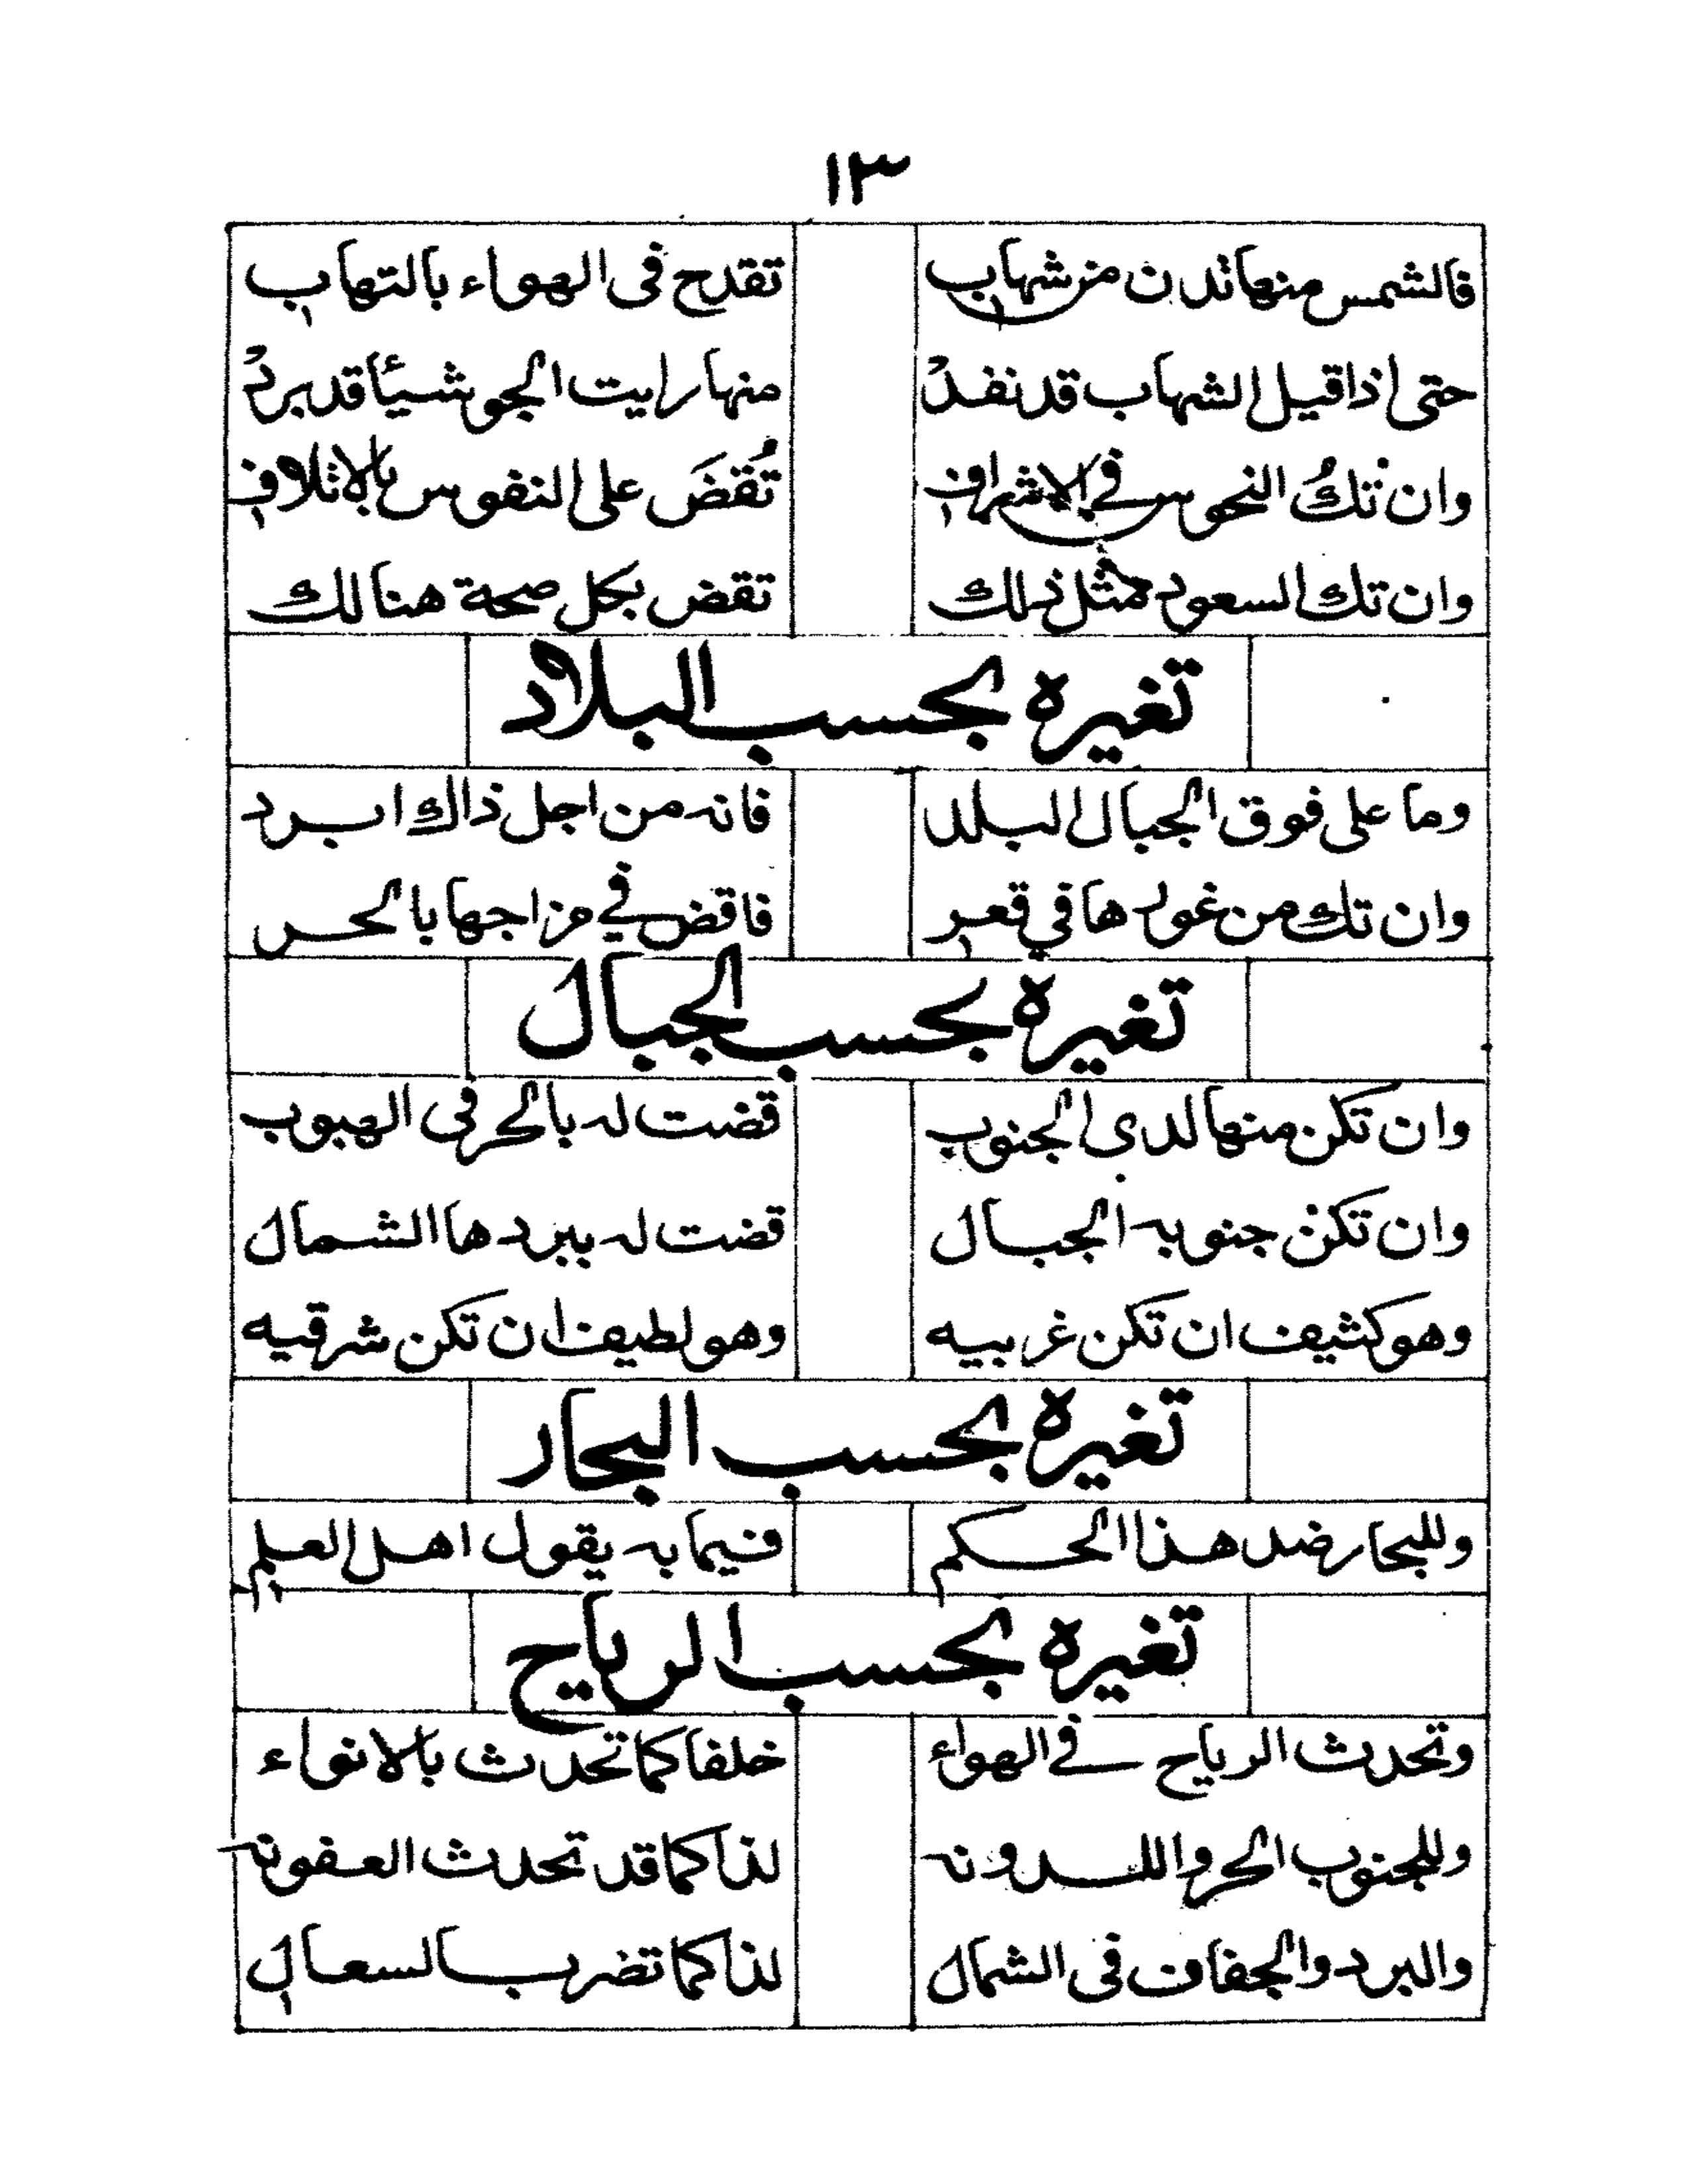 ١٣
فالشمس منها تدن من شهاب تقدح فى الهواء بالتهاب
حتى اذا قيل الشهاب قد نفدْ منها رايت الجو شيئا قد بردْ
وان تكُ النحوس في الاشراف تُقضَ على النفوس بالاتلاف
وان تك السعود مثل ذلك تقض بكل صحة هنالك
تغيره بحسب البلاد
وما على فوق الجبال البلد فانه من اجل ذاك ابرد
وان تك من غورها في قعر فاقض في مزاجها بالحر
تغيره بحسب الجبال
وان تكن منها لدى الجنوب قضت له بالحر فى الهبوب
وان تكن جنوبه الجبال قضت له ببردها الشمال
وهو كثيف ان تكن غربيه وهو لطيف ان تكن شرقيه
تغيره بحسب البحار
وللبحار ضد هذا الحكم فيما به يقول اهل العلم
تغيره بحسب الرياح
وتحدث الرياح في الهواء خلفا كما تحدث بالانواء
وللجنوب الحر واللدونه لذا كما قد تحدث العفونه
والبرد والجفاف فى الشمال لذا كما تضر بالسعال